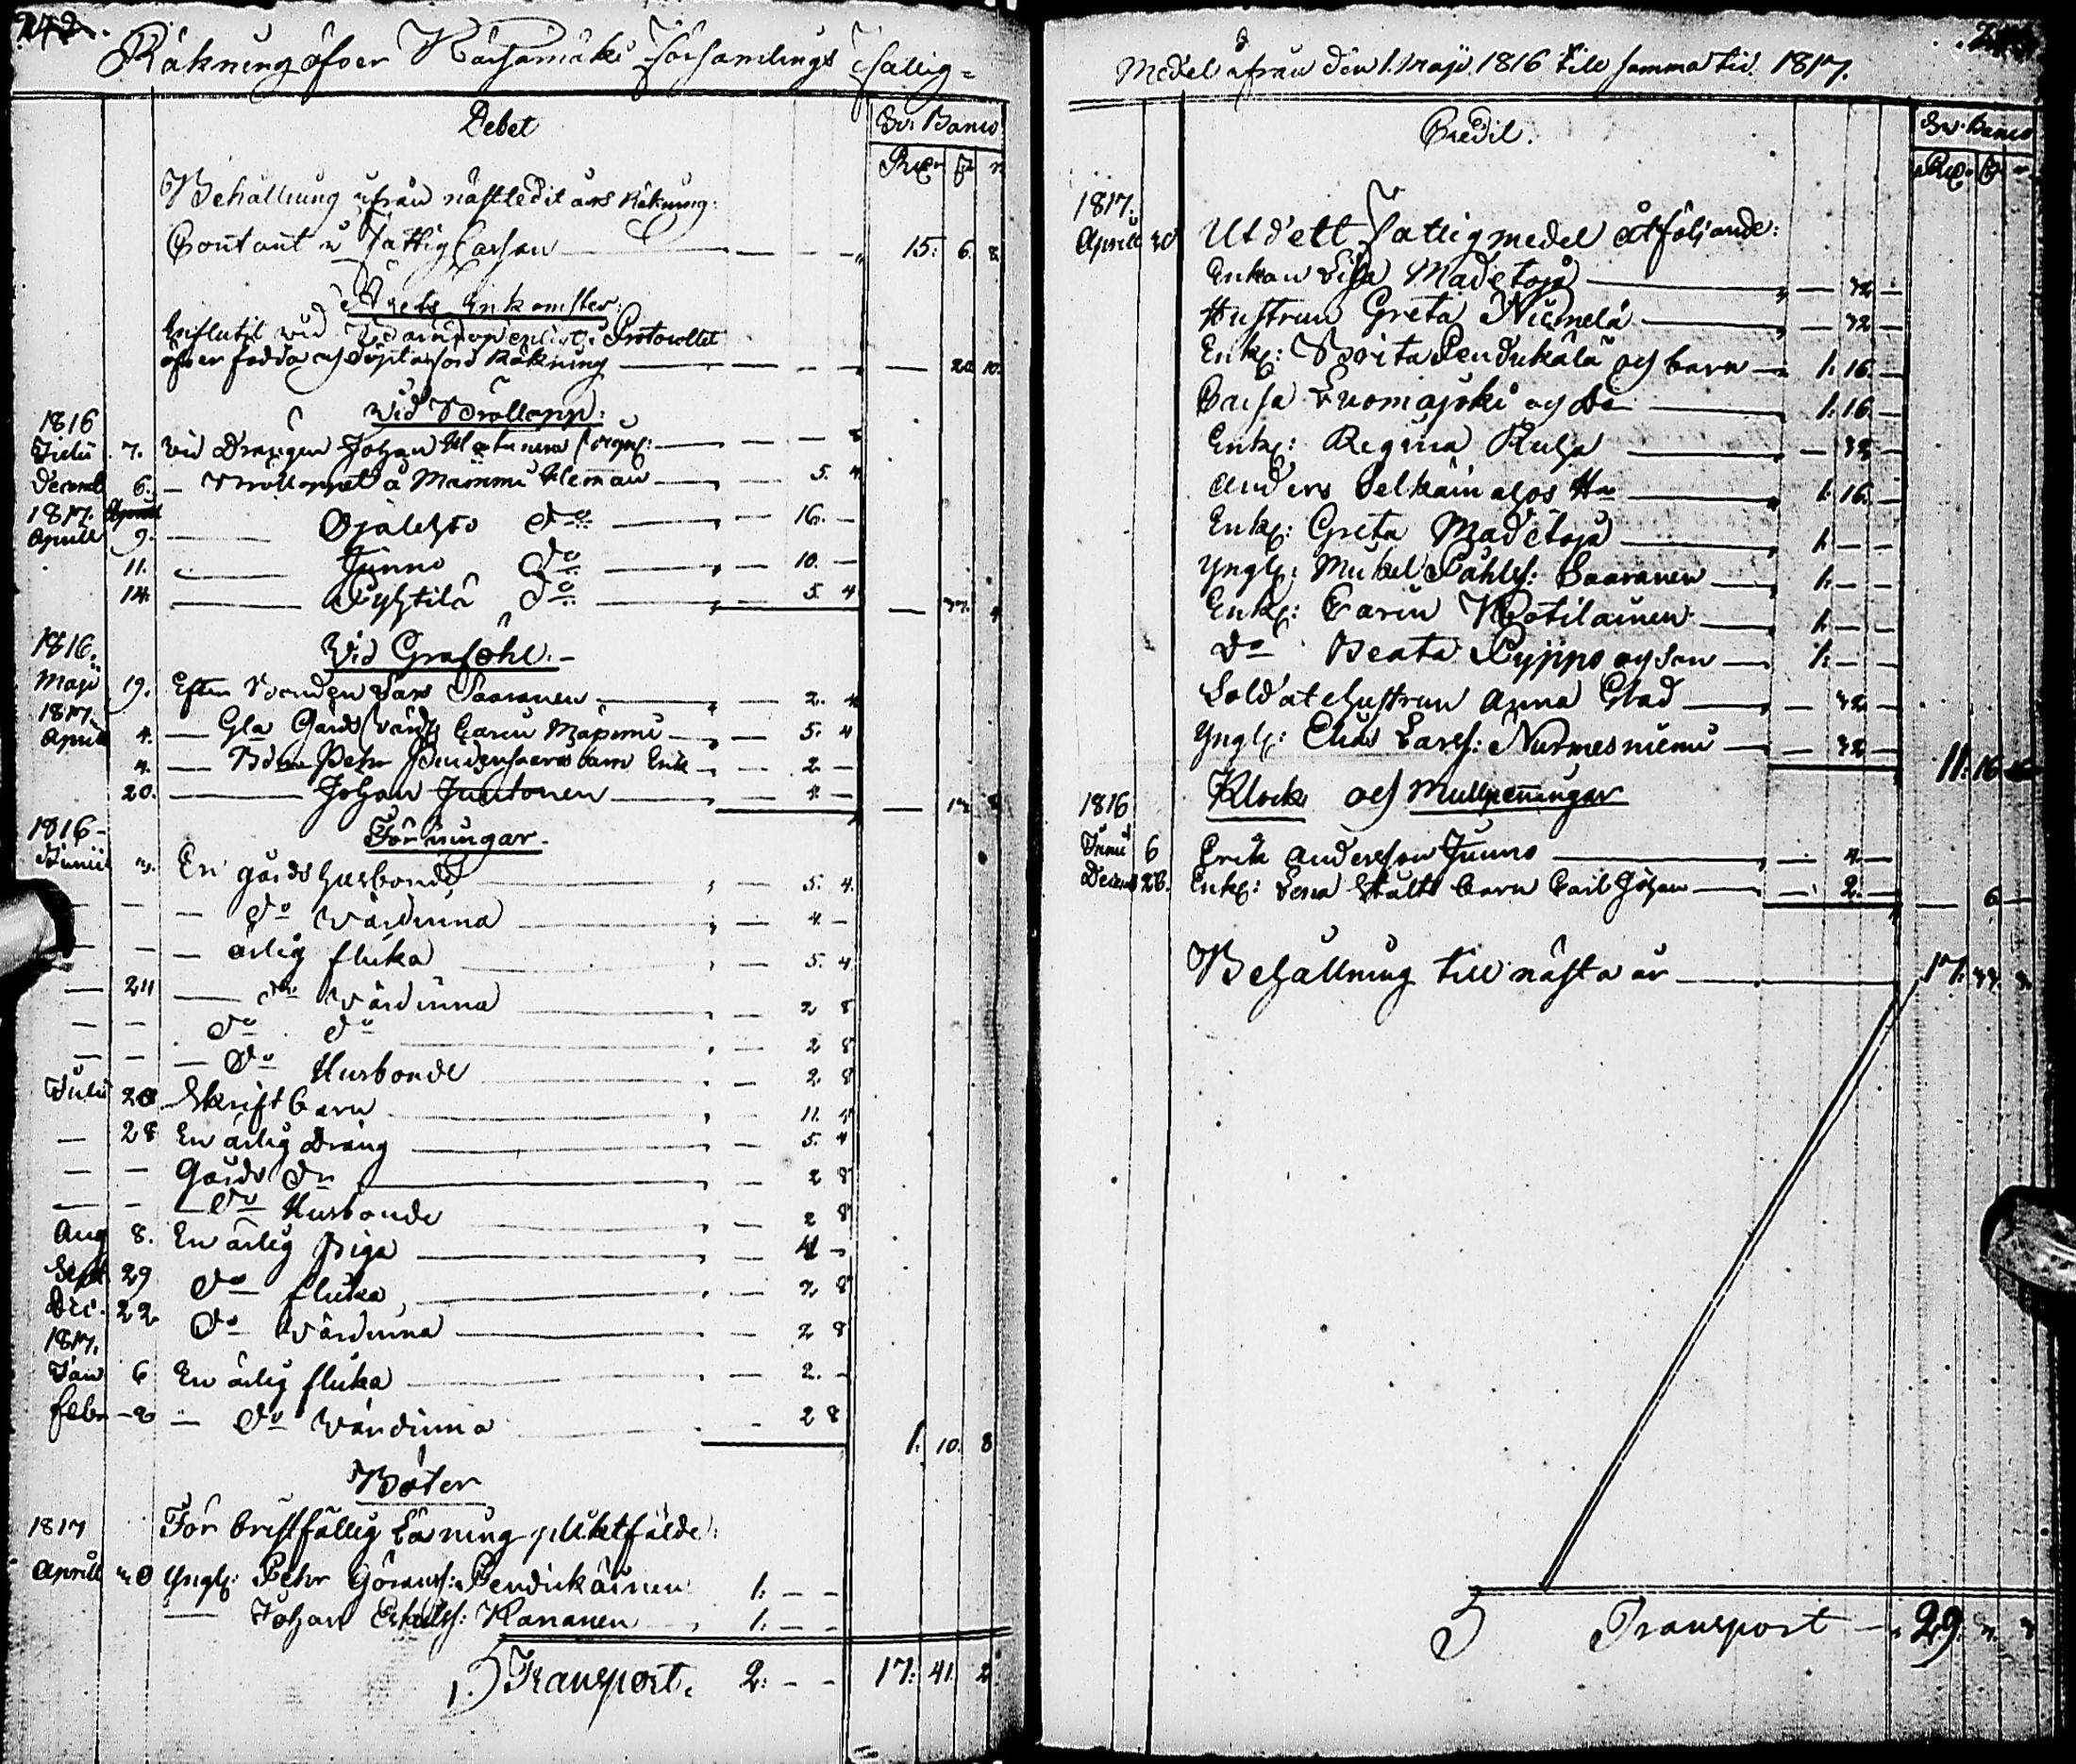 242.
Räkning öfver Kärsämäki Församlings Fattig=
Debet
Sv: Banco
Rd ß r
Behållning ifrån nästledit års Räkning:
Contant i Fattig Cassan — 15: 6. 8
Årets Inkomster:
Influtit vid Barndop enligt Protocollet
öfver födda och döpta förd Räkning — 20 10.
Vid Bröllopp:
1816
Julii 7. Vid Drängen Johan — 8
Decemb 6. — Brölloppet å Mämmi Heman — 5. 4
1817.
Aprill 9. — Ojalehto Do — 16. —
11. — Junno Do — 10. —
14. — Pyhtilä Do — 5 4 — 37. 4
1816.
Vid Graföhl. —
Maji 19. Efter Bonden Lars Saaranen — 2. 4
1817.
Aprill 4. — Gla Gårds värd: Carin Mäpimi — 5. 4
4. — Bdn Pehr barn Erik — 2 —
20. — Johan Juntonen — 4 — 14. 8
1816 —
Förningar.
Junii 3. En gårds husbonde — 5. 4.
— — — Do Värdinna — 4 —
— — — ärlig flicka — 5. 4
— 24 — Do Värdinna — 2 8
— — Do Do — 2 8
— — — Do Husbonde — 2 8
Julii 20 Skriftbarn — 11. 4
— 28 En ärlig Dräng — 5. 4
— — Gårds Do — 2 8
— — — Do Husbonde — 2 8
Aug 8. En ärlig Piga — 4 —
Sept 29 Do flicka — 2 8
Dec. 22 Do Värdinna — 2 8
1817.
Jan 6 En ärlig flicka — 2. —
Febr — 2 — Do Värdinna — 2 8
1. 10. 8
Böter
1817 För bristfällig Läsning pliktfälde:
Aprill 30 Yngl: Pehr Görans: Pendickäinen 1: — —
— Johan Ericss: Kananen 1: — —
Transport. 2: — — 17: 41. 2
Medel ifrån den 1. Maji 1816 till samma tid 1817.
Credit.
Sv. Banco
Rd ß r
1817.
Aprill 30 Utdelt Fattigmedel åt följande:
Enkan Lisa Madetoja — 32 —
Hustrun Greta Niemelä — 32 —
Enk: Brita Pendickälä och barn — 1. 16. —
Caisa Luomajoki och Do — 1: 16 —
Enk: Regina Ruha — 32 —
Anders Selkäinahos Ha — 1. 16. —
Enk: Greta Madetoja — 1. — —
Yngl: Mickel Påhls: Saaranen — 1. — —
Enk: Carin Kotilainen — 1. — —
Do Beata Pyppo och son — 1: — —
Soldatehustrun Anna Glad — 32 —
Yngl: Elias Larss: Nurmesniemi — 32 — 11: 16 —
Klock och Mullpenningar
1816
Junii 6 Erik Andersson Junno — 4 —
Decemb 26. Enk: Lena Stålts barn Carl Johan — 2. — 6 —
Behållning till nästa år — 17. 33. 3.
Transport — 29. 7. 3